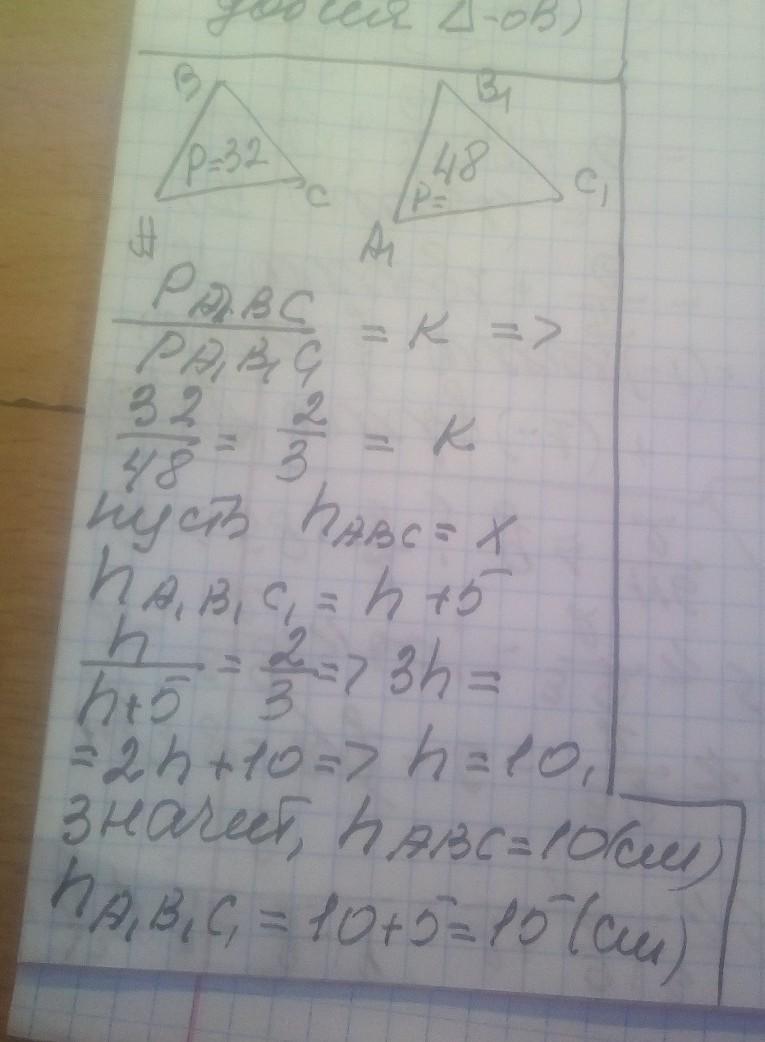 Δ-ов)
B
B₁
P=32
48
P=
C
C₁
A
A₁
P ABC
/ P A₁B₁C₁ = K =>
32/48 = 2/3 = K
пусть h ABC = x
h A₁B₁C₁ = h + 5
h/(h+5) = 2/3 => 3h =
= 2h + 10 => h = 10,
значит, h ABC = 10(см)
h A₁B₁C₁ = 10+5 = 15 (см)